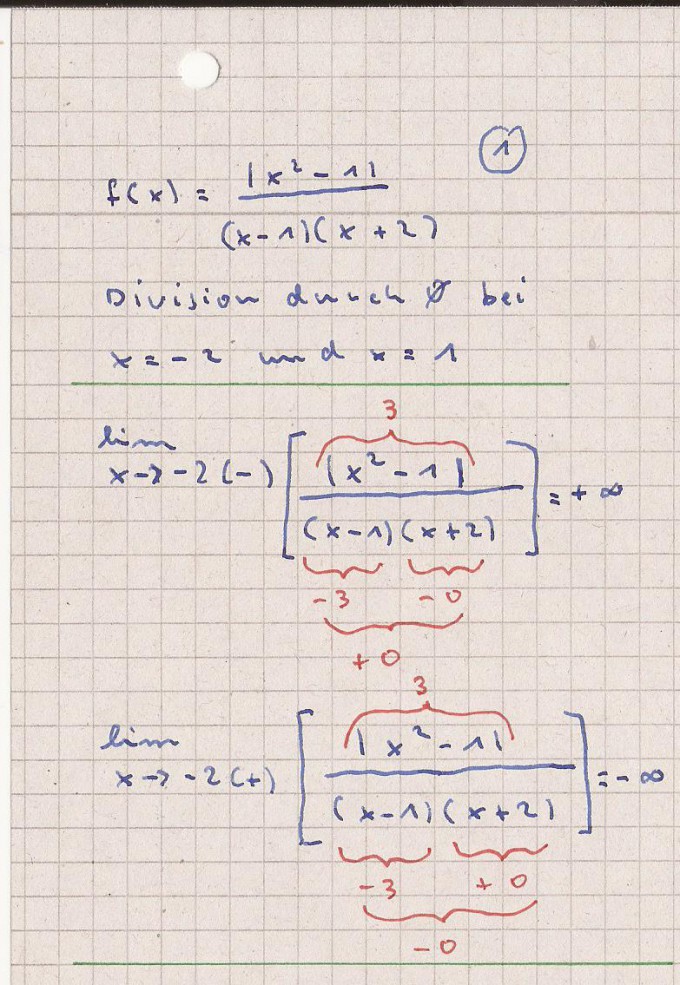 ①
f(x) = |x² - 1| / (x-1)(x+2)
Division durch 0 bei
x = -2 und x = 1
3
lim x→-2(-) [ |x² - 1| / (x-1)(x+2) ] = +∞
-3 -0
+0
3
lim x→-2(+) [ |x² - 1| / (x-1)(x+2) ] = -∞
-3 +0
-0